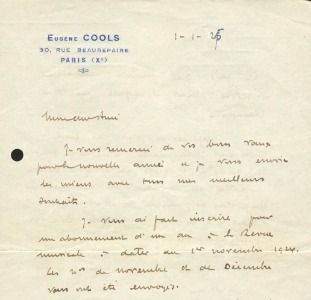 EUGÈNE COOLS
30, RUE BEAUREPAIRE
PARIS (Xe)
1-1-25
Mon cher Ami
Je vous remercie de vos bons vœux
pour la nouvelle année et je vous envoie
les miens avec tous mes meilleurs
souhaits.
Je vous ai fait inscrire pour
un abonnement d'un an à la Revue
musicale à dater du 1er novembre 1924.
Les nos de novembre et de Décembre
vous ont été envoyés.